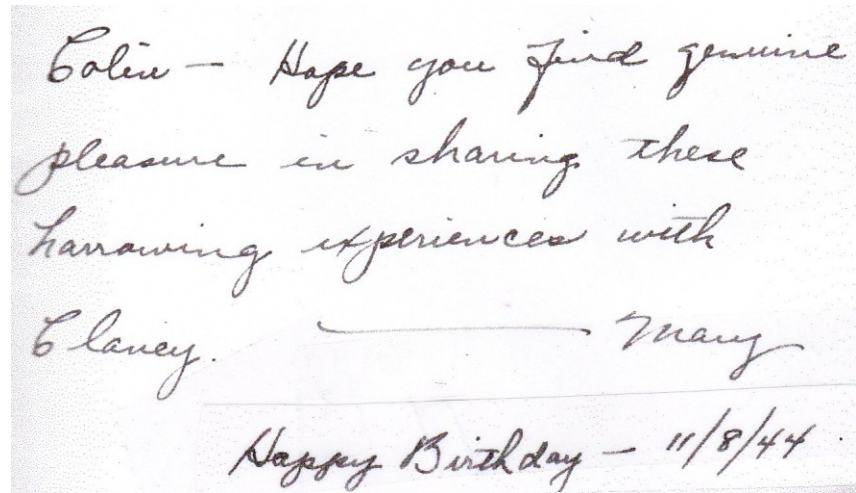 Colin — Hope you find genuine
pleasure in sharing these
harrowing experiences with
Clancy. — Mary
Happy Birthday — 11/8/44